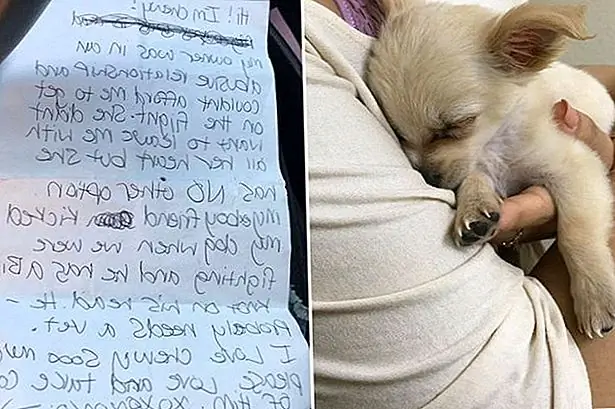 Hi! I'm Chewy!
my owner was in an
abusive relationship and
couldnt afford me to get
on the flight. She didnt
want to leave me with
all her heart but she
has NO other option.
My boyfriend kicked
my dog when we were
fighting and he has a Bi
knot on his head. He
needs a vet.
I Love Chewy Sooo mu
please love and take ca
of him.